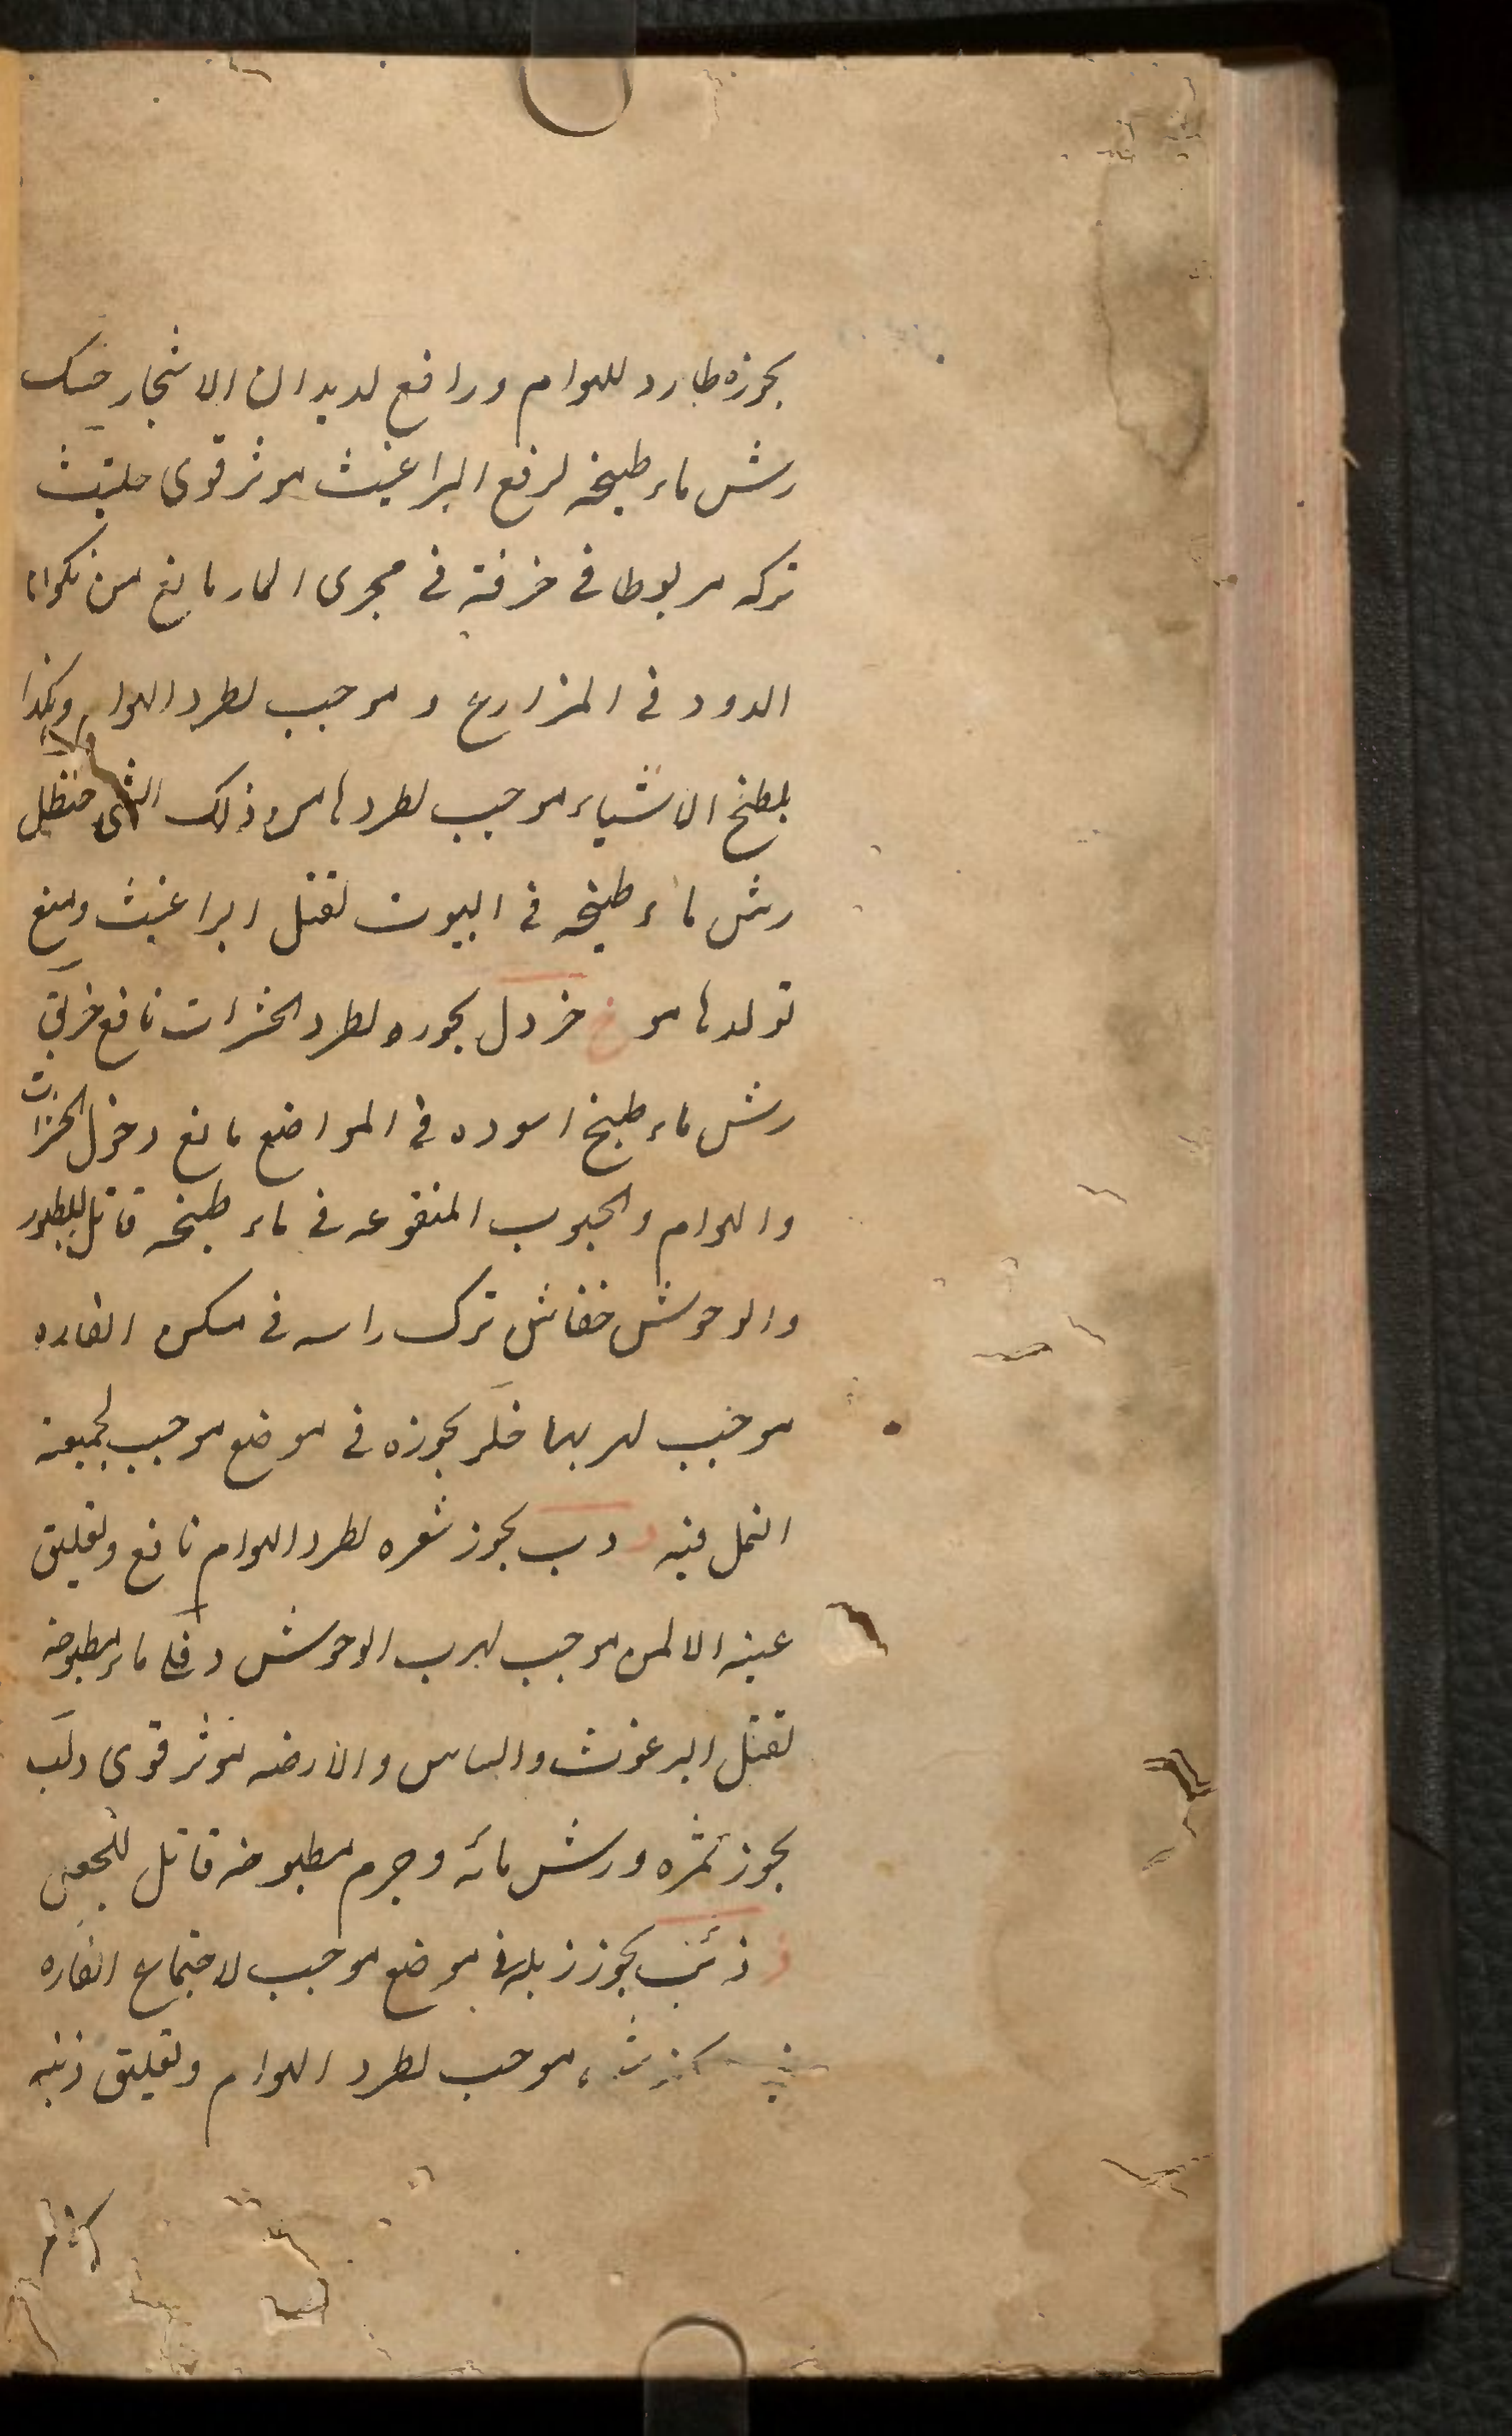 بخوزه طارد للهوام ورافع لديدان الاشجار حسک
رش ماء طبیخه لرفع البراغيث موثر قوى حلتيت
تركه مربوطا فى خرقة فى مجرى الماء مانع من تكون
الدود فى المزارع و موجب لطرد الهوا وبكذا
بلطخ الاشياء موجب لطردها من ذلك الشى حنظل
رش ماء طبيخه فى البيوت لقتل البراغيث ومنع
تولدها مو خ خردل بخوره لطرد الحشرات نافع خربق
رش ماء طبيخ اسوده فى المواضع مانع دخول الحشرات
والهوام والحبوب المنقوعه فى ماء طبيخه قاتل للطيور
والوحوش خفاش ترك راسه فى مسكن الفاره
موجب لهربها خلر بخوزه فى موضع موجب لجميعة
النمل فيه د دب بخوز شعره لطرد الهوام نافع وتعليق
عينه الايمن موجب لهرب الوحوش دفلى ماء مطبوخه
لقتل البرغوث والساس والارضه موثر قوى دلب
بخوز ثمره ورش مائه وجرم مطبوخه قاتل للجعل
ذ ذئب بخوز زبله فى موضع موجب لاجتماع الفاره
موجب لطرد الهوام وتعليق ذنبه